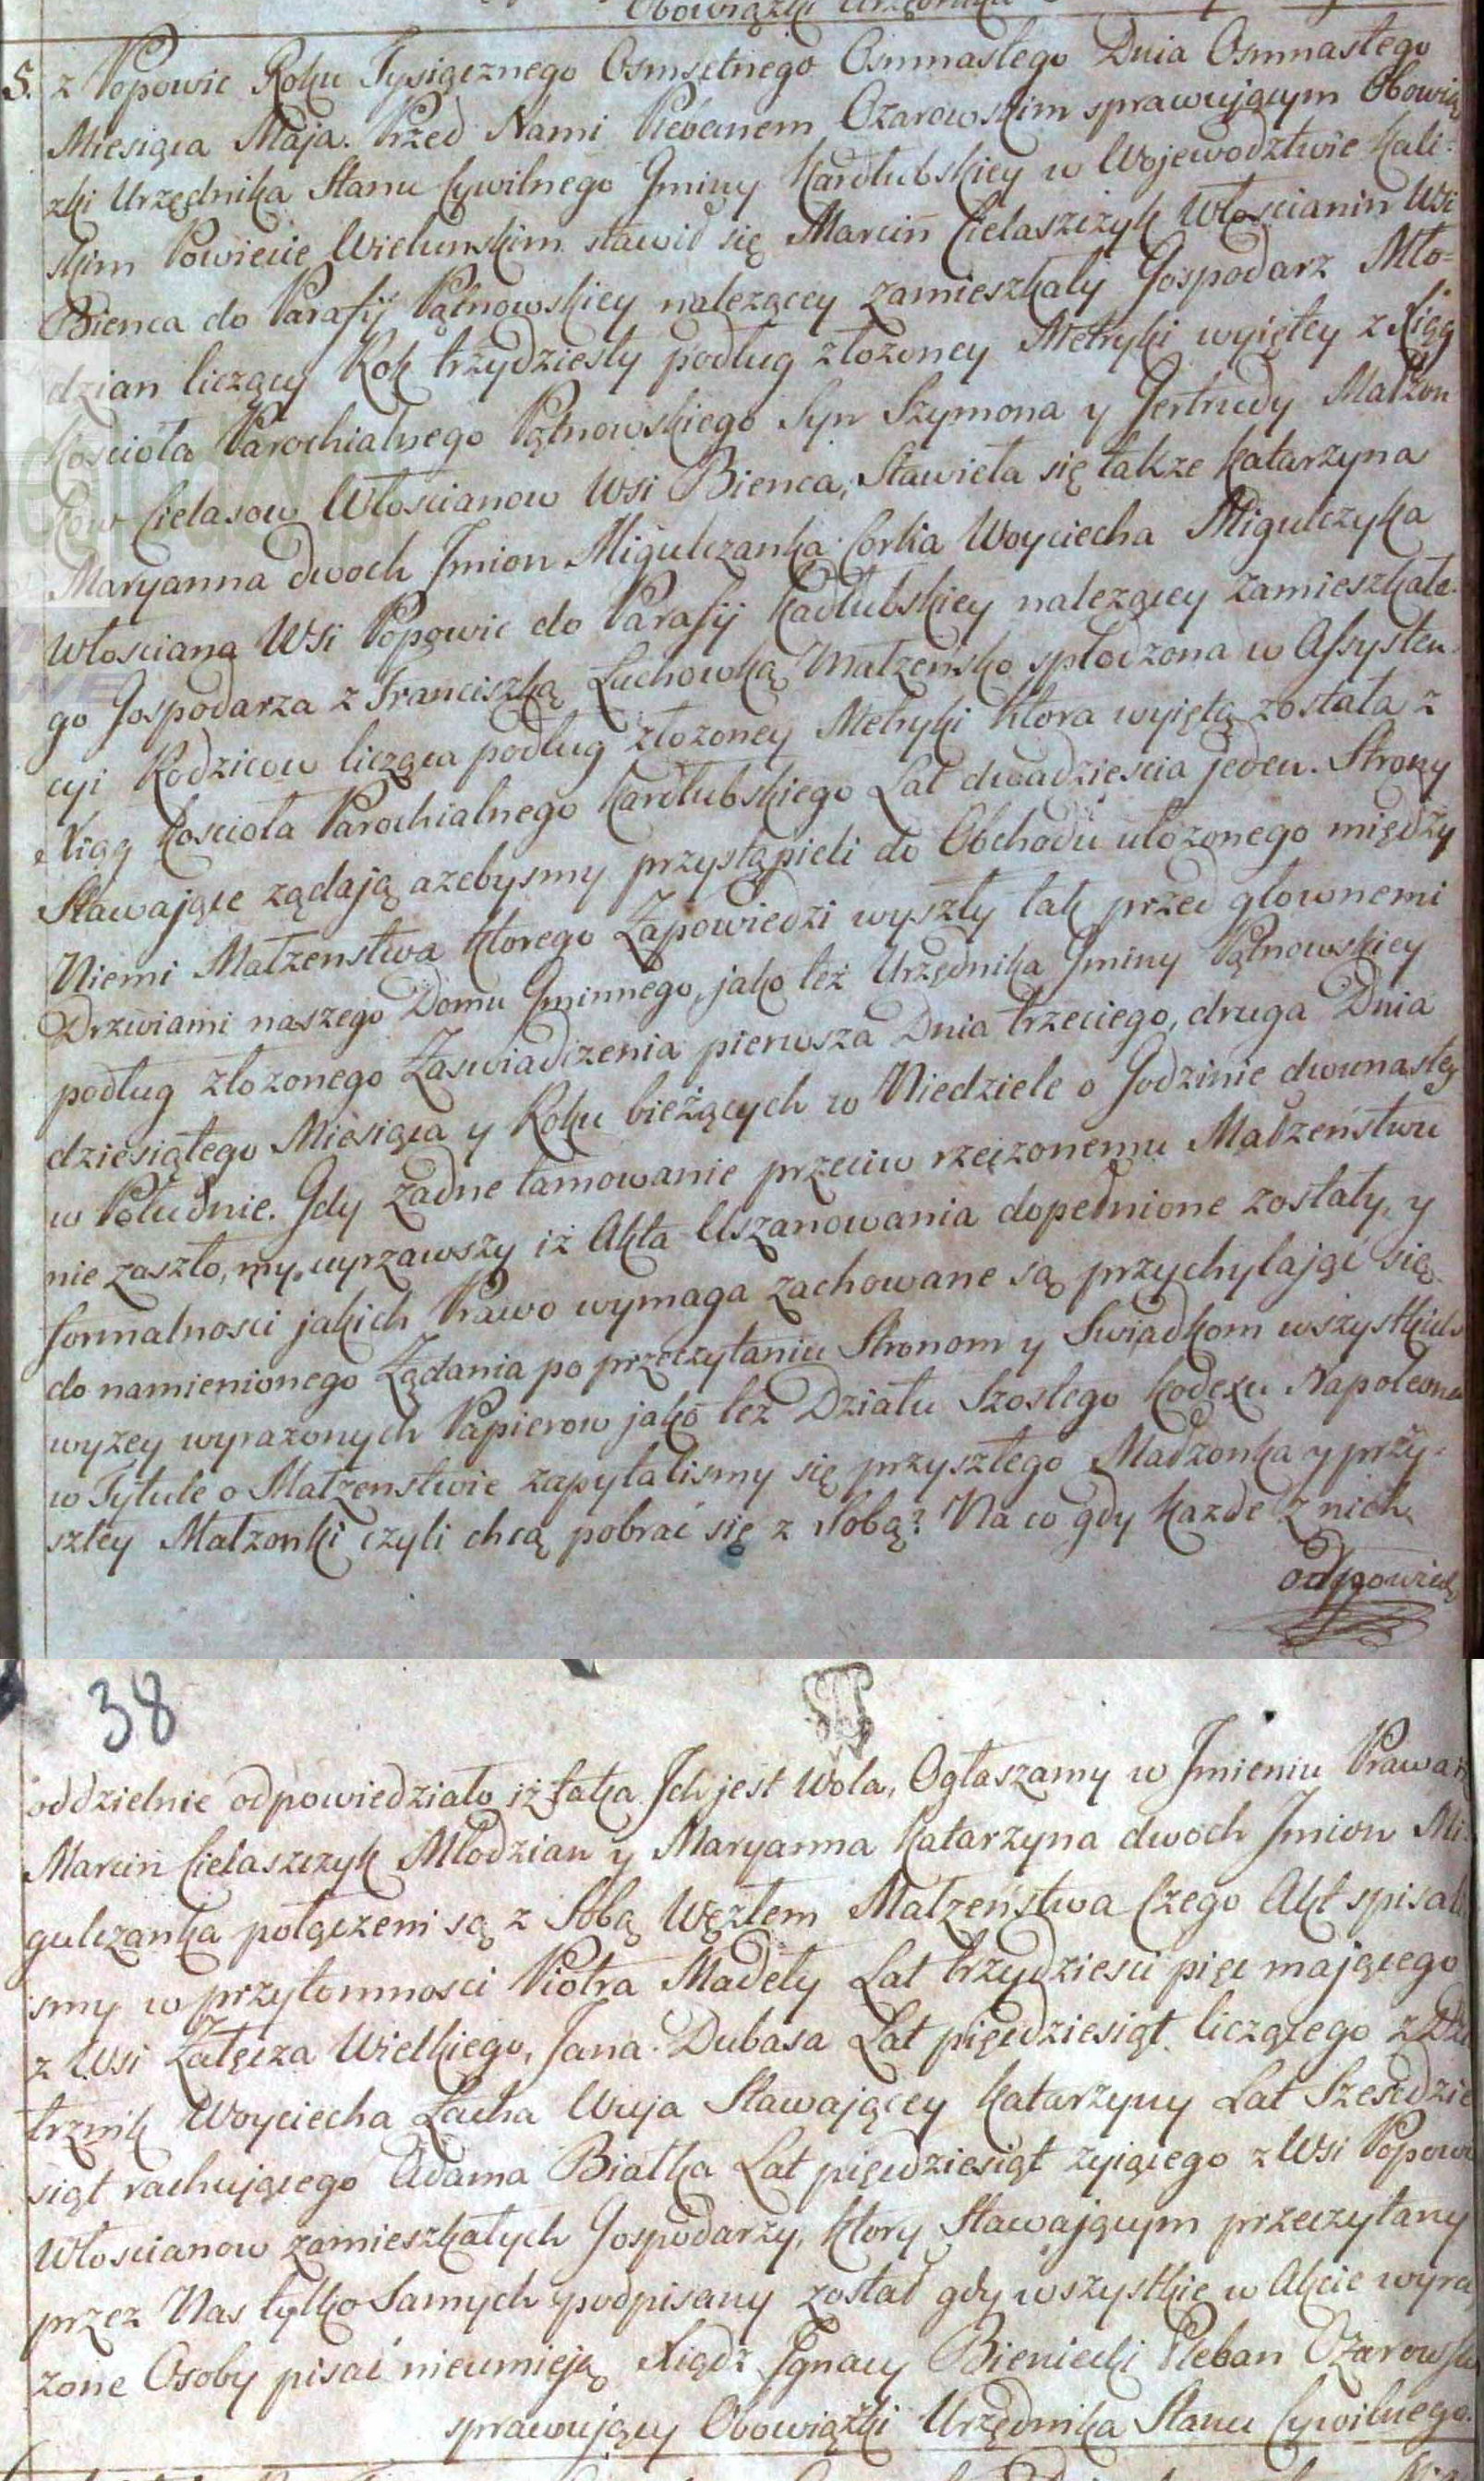 Obowiązki Urzędnika
5. z Popowic Roku Tysiącznego Osmsetnego Osmnastego Dnia Osmnastego
Miesiąca Maja. Przed Nami Plebanem Ozarowskim sprawującym Obowią
zki Urzędnika Stanu Cywilnego Gminy Kadłubskiey w Wojewodztwie Kali-
skim Powiecie Wielunskim stawił się Marcin Cielaszczyk Włoscianin Wsi
Bienca do Parafij Pątnowskiey nalezącey zamieszkały Gospodarz Mło-
dzian liczący Rok trzydziesty podług złozoney Metryki wyiętey z Xiąg
Koscioła Parochialnego Pątnowskiego Syn Szymona y Gertrudy Małzon
kow Cielasow Włoscianow Wsi Bienca, Stawieła się także Katarzyna
Maryanna dwoch Jmion Migulczanka Corka Woyciecha Migulczyka
Włosciana Wsi Popowic do Parafij Kadłubskiey nalezącey zamieszkałe-
go Gospodarza z Franciszką Luchowką Małzensko spłodzona w Assysten-
cyi Rodzicow licząca podług złozoney Metryki ktora wyięta została z
Xiąg Koscioła Parochialnego Kadłubskiego Lat dwadziescia jeden. Strony
Stawające ządają azebysmy przystąpieli do Obchodu ułozonego między
Niemi Małzenstwa ktorego Zapowiedzi wyszły tak przed głownemi
Drzwiami naszego Domu Gminnego, jako też Urzędnika Gminy Pątnowskiey
podług złozonego Zaswiadczenia pierwsza Dnia trzeciego, druga Dnia
dziesiątego Miesiąca y Roku bieżących w Niedziele o Godzinie dwunastey
w Południe. Gdy żadne tamowanie przeciw rzeczonemu Małzeństwu
nie zaszło, my uyrzawszy iż Akta Uszanowania dopełnione zostały, y
formalnosci jakich Prawo wymaga zachowane są przychylając się
do namienionego Ządania po przeczytaniu Stronom y Swiadkom wszystkich
wyzey wyrazonych Papierow jako też Działu Szostego Kodexu Napoleona
w Tytule o Małzenstwie zapytalismy się przyszłego Małzonka y przy-
szłey Małzonki czyli chcą pobrać się z sobą? Na co gdy kazde z nich
odpowied
38
oddzielnie odpowiedziało iż taka Jch jest Wola, Ogłaszamy w Jmieniu Prawa iż
Marcin Cielaszczyk Młodzian y Maryanna Katarzyna dwoch Jmion Mi
gulczanka połączeni są z Sobą Węzłem Małzeństwa Czego Akt spisali
smy w przytomnosci Piotra Madeły Lat trzydziesci pięc mającego
z Wsi Załęcza Wielkiego, Jana Dubasa Lat pięcdziesiąt liczącego z Dzie
trznik Woyciecha Lacha Wuja Stawającey Katarzyny Lat Szescdzie
siąt rachującego Adama Białka Lat pięcdziesiąt zyiącego z Wsi Popowic
Włoscianow zamieszkałych Gospodarzy, ktory Stawającym przeczytany
przez Nas tylko Samych podpisany został gdy wszystkie w Akcie wyra
zone Osoby pisać nieumieją Xiądz Jgnacy Bieniecki Pleban Ozarowski
sprawujący Obowiązki Urzędnika Stanu Cywilnego.